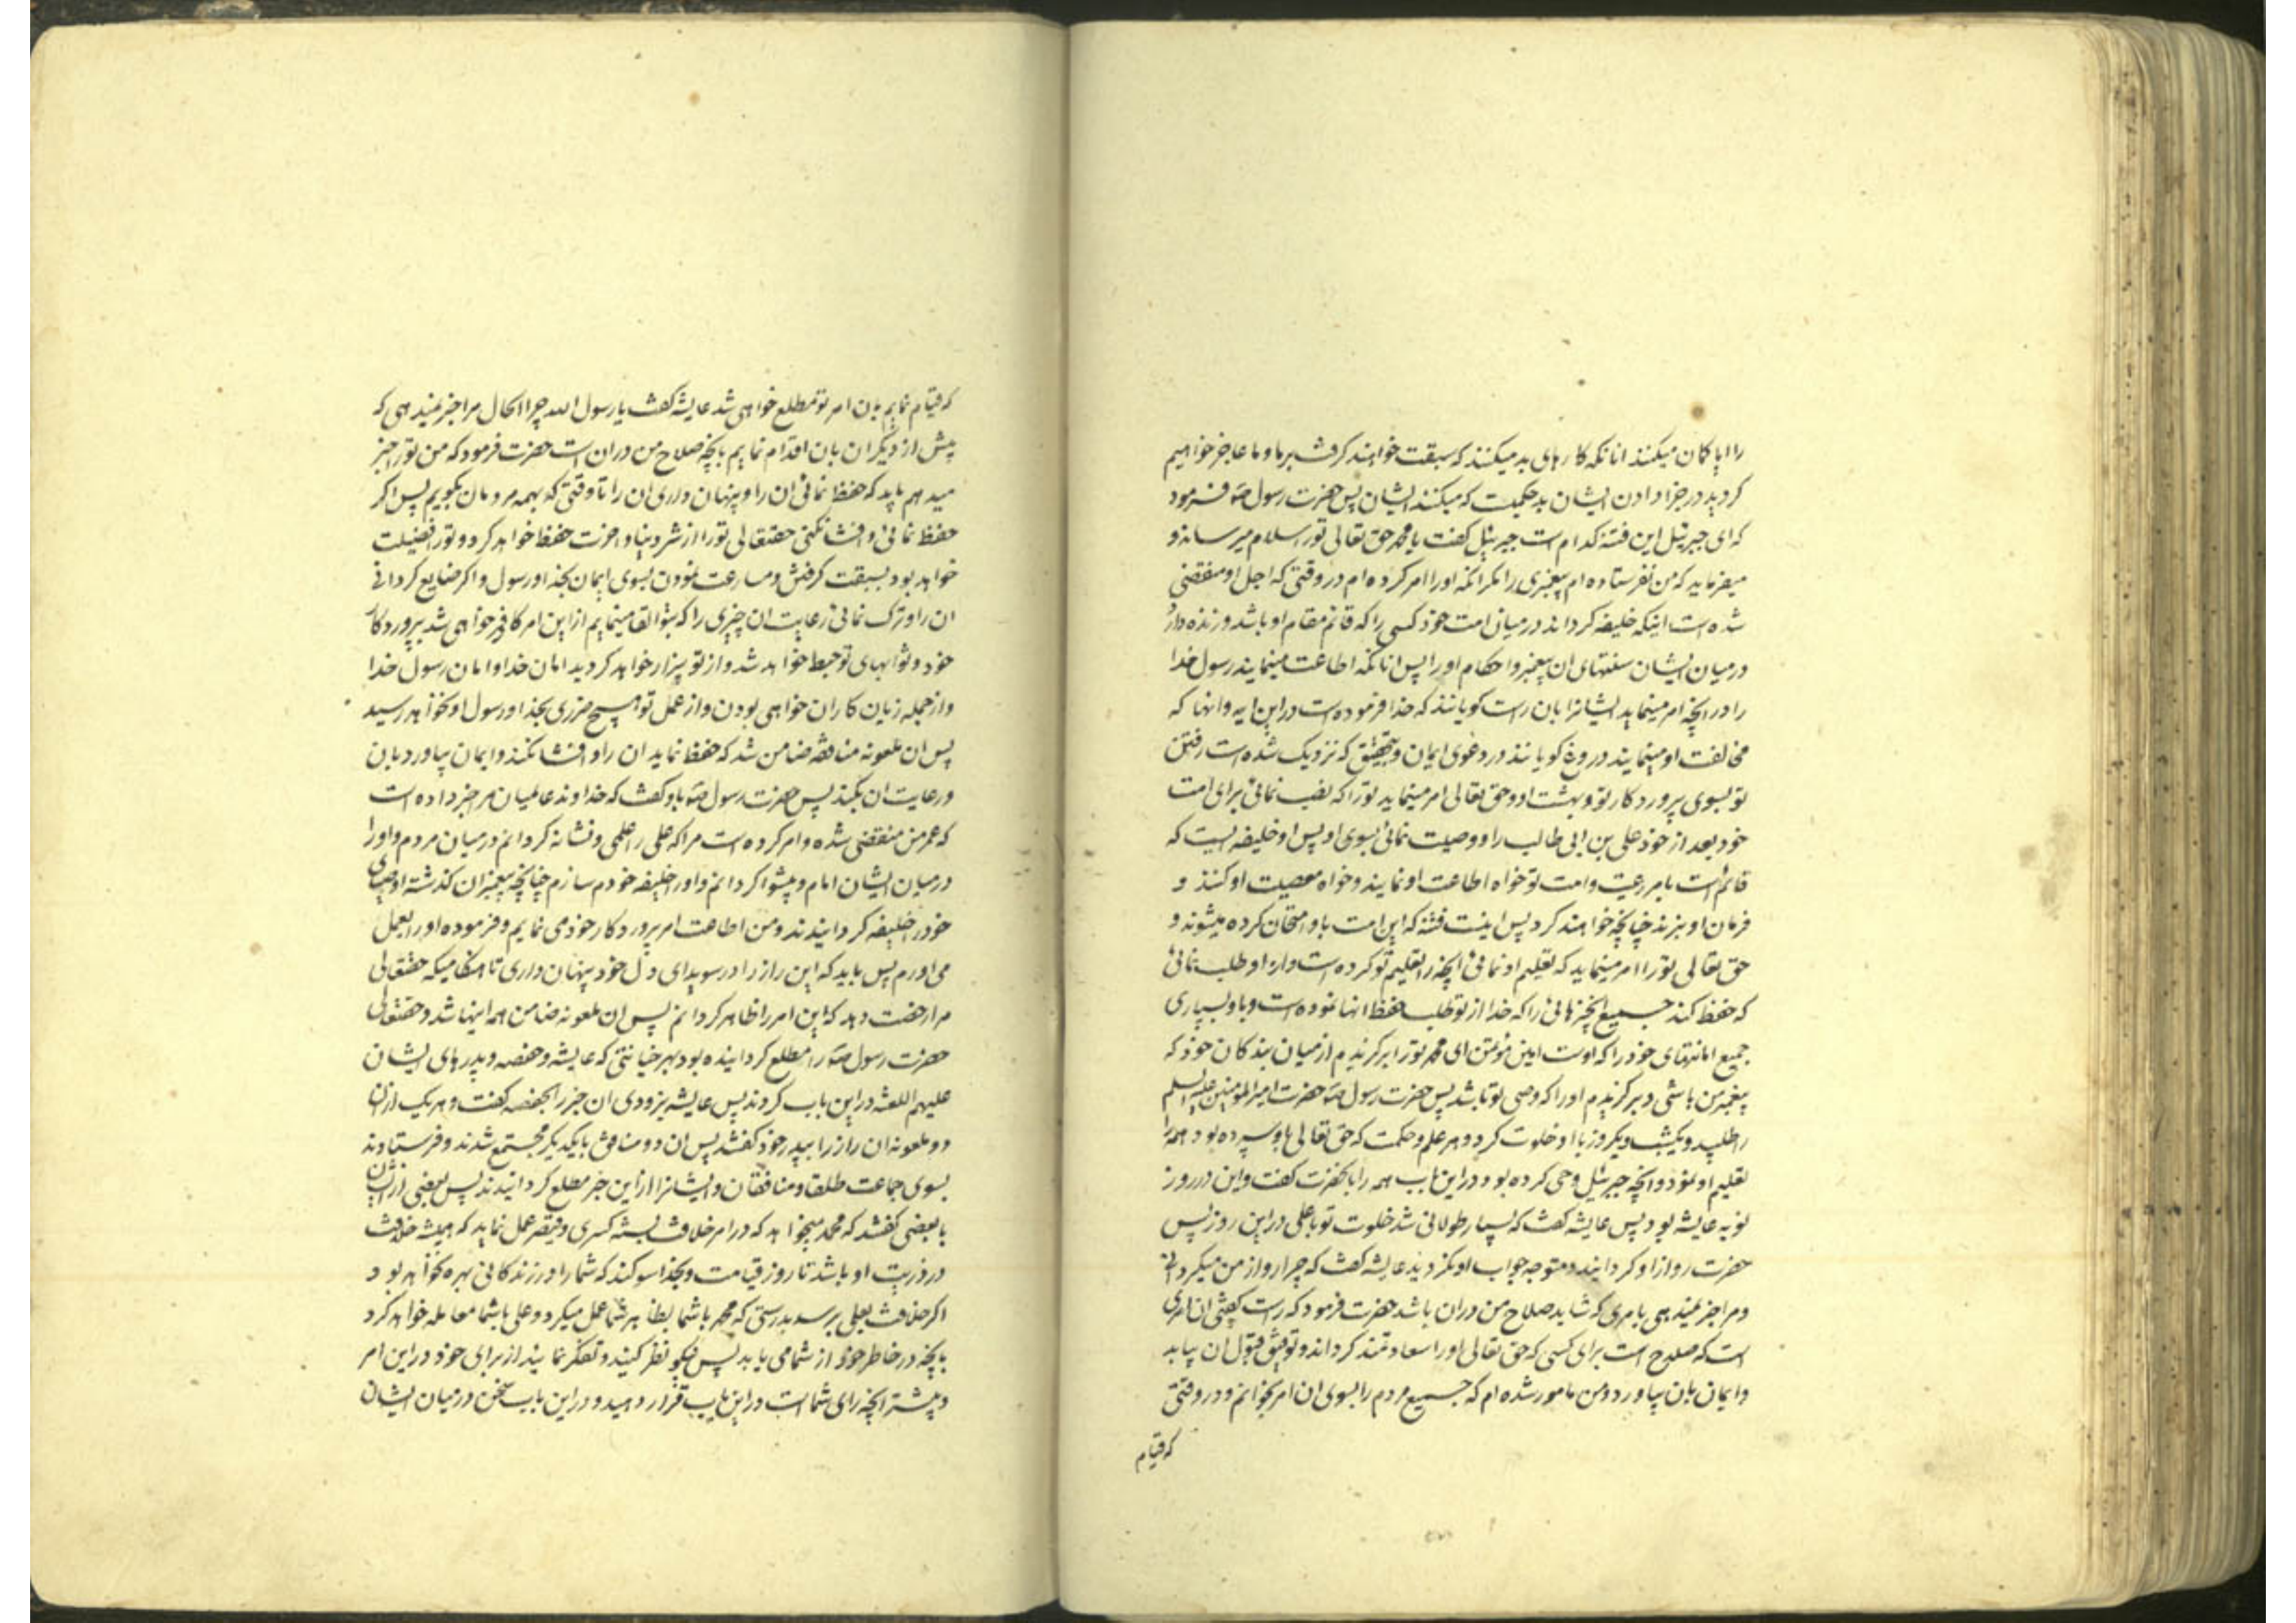 را ایا کمان میکنند انانکه کارهای بد میکنند که سبقت خواهند کرفت بر ما و ما عاجز خواهیم
کردید در جزا دادن ایشان بد حکمیت که میکنند ایشان پس حضرت رسول ص فرمود
که ای جبرئیل این فتنه کدام است جبرئیل کفت یا محمد حق تعالی تورا سلام میرساند و
میفرماید که من نفرستاده ام پیغمبری را مکر انکه اورا امر کرده ام در وقتی که اجل او منقضی
شده است اینکه خلیفه کرداند در میان امت خود کسی را که قائم مقام او باشد و زنده دارد
در میان ایشان سنتهای ان پیغمبر و احکام اورا پس انانکه اطاعت مینمایند رسول خدا
را در انچه امر مینماید ایشانرا بان راست کویانند که خدا فرموده است در این ایه و انها که
مخالفت او مینمایند دروغ کویانند در دعوی ایمان و بتحقیق که نزدیک شده است رفتن
تو بسوی پروردکار تو و بهشت او و حق تعالی امر مینماید تورا که نصب نمائی برای امت
خود بعد از خود علی بن ابی طالب را و وصیت نمائی بسوی او پس او خلیفه ایست که
قائم است بامر رعیت و امت تو خواه اطاعت او نمایند و خواه معصیت او کنند و
فرمان او نبرند چنانچه خواهند کرد پس اینست فتنه که این امت باو امتحان کرده میشوند و
حق تعالی تورا امر مینماید که تعلیم او نمائی انچه را تعلیم تو کرده است و از او طلب نمائی
که حفظ کند جمیع انچیزهائی را که خدا از تو طلب حفظ انها نموده است و باو بسپاری
جمیع امانتهای خود را که اوست امین مؤتمن ای محمد تورا برکزیدم از میان بندکان خود که
پیغمبر من باشی و برکزیدم اورا که وصی تو باشد پس حضرت رسول ص حضرت امیرالمومنین علیه السلم
را طلبید و یکشب و یکروز با او خلوت کرد و هر علم و حکمت که حق تعالی باو سپرده بود همه را
تعلیم او نمود و انچه جبرئیل وحی کرده بود در این باب همه را بانحضرت کفت و این در روز
نوبه عایشه بود پس عایشه کفت که بسیار طولانی شد خلوت تو با علی در این روز پس
حضرت رو از او کردانید و متوجه جواب او نکردید عایشه کفت که چرا رو از من میکردانی
و مرا خبر نمیدهی بامری که شاید صلاح من دران باشد حضرت فرمود که راست کفتی ان امری
است که صلاح است برای کسی که حق تعالی اورا سعادتمند کرداند و توفیق قبول ان بیابد
و ایمان بان بیاورد و من مامور شده ام که جمیع مردم را بسوی ان امر بخوانم و در وقتی
که قیام
که قیام نمایم بان امر تو مطلع خواهی شد عایشه کفت یا رسول الله چرا الحال مرا خبر نمیدهی که
پیش از دیکران بان اقدام نمایم بانچه صلاح من دران است حضرت فرمود که من تورا خبر
میدهم باید که حفظ نمائی ان را و پنهان داری ان را تا وقتی که بهمه مردمان بکویم پس اکر
حفظ نمائی و افشا نکنی حقتعالی تورا از شر دنیا و اخرت حفظ خواهد کرد و تورا فضیلت
خواهد بود بسبقت کرفتن و مسارعت نمودن بسوی ایمان بخدا و رسول و اکر ضایع کردانی
ان را و ترک نمائی رعایت ان چیزی را که بتو القا مینمایم از این امر کافر خواهی شد بپروردکار
خود و ثوابهای تو حبط خواهد شد و از تو بیزار خواهد کردید امان خدا و امان رسول خدا
و از جمله زیان کاران خواهی بودن و از عمل تو هیچ ضرری بخدا و رسول او نخواهد رسید
پس ان ملعونه منافقه ضامن شد که حفظ نماید ان را و افشا نکند و ایمان بیاورد بان
و رعایت ان بکند پس حضرت رسول ص باو کفت که خداوند عالمیان مرا خبر داده است
که عمر من منقضی شده و امر کرده است مرا که علی را علمی و نشانه کردانم در میان مردم و اورا
در میان ایشان امام و پیشوا کردانم و اورا خلیفه خودم سازم چنانچه پیغمبران کذشته اوصیای
خود را خلیفه کردانیدند و من اطاعت امر پروردکار خود می نمایم و فرموده اورا بعمل
می اورم پس باید که این راز را در سویدای دل خود پنهان داری تا هنکامیکه حقتعالی
مرا رخصت دهد که این امر را ظاهر کردانم پس ان ملعونه ضامن همه اینها شد و حقتعالی
حضرت رسول ص را مطلع کردانیده بود بهر خیانتی که عایشه و حفصه و پدرهای ایشان
علیهم اللعنه در این باب کردند پس عایشه بزودی ان خبر را بحفصه کفت و هر یک از ان
دو ملعونه ان راز را بپدر خود کفتند پس ان دو منافق با یکدیکر مجتمع شدند و فرستادند
بسوی جماعت طلقا و منافقان و ایشانرا از این خبر مطلع کردانیدند پس بعضی از ایشان
با بعضی کفتند که محمد میخواهد که در امر خلافت بسنه کسری و قیصر عمل نماید که همیشه خلافت
در ذریت او باشد تا روز قیامت و بخدا سوکند که شما را در زندکانی بهره نخواهد بود
اکر خلافت بعلی برسد بدرستی که محمد با شما بظاهر شما عمل میکرد و علی با شما معامله خواهد کرد
بانچه در خاطر خود از شما می یابد پس نیکو نظر کنید و تفکر نمایید از برای خود در این امر
و پیشتر انچه رای شما است در این باب قرار دهید و در این باب سخن در میان ایشان